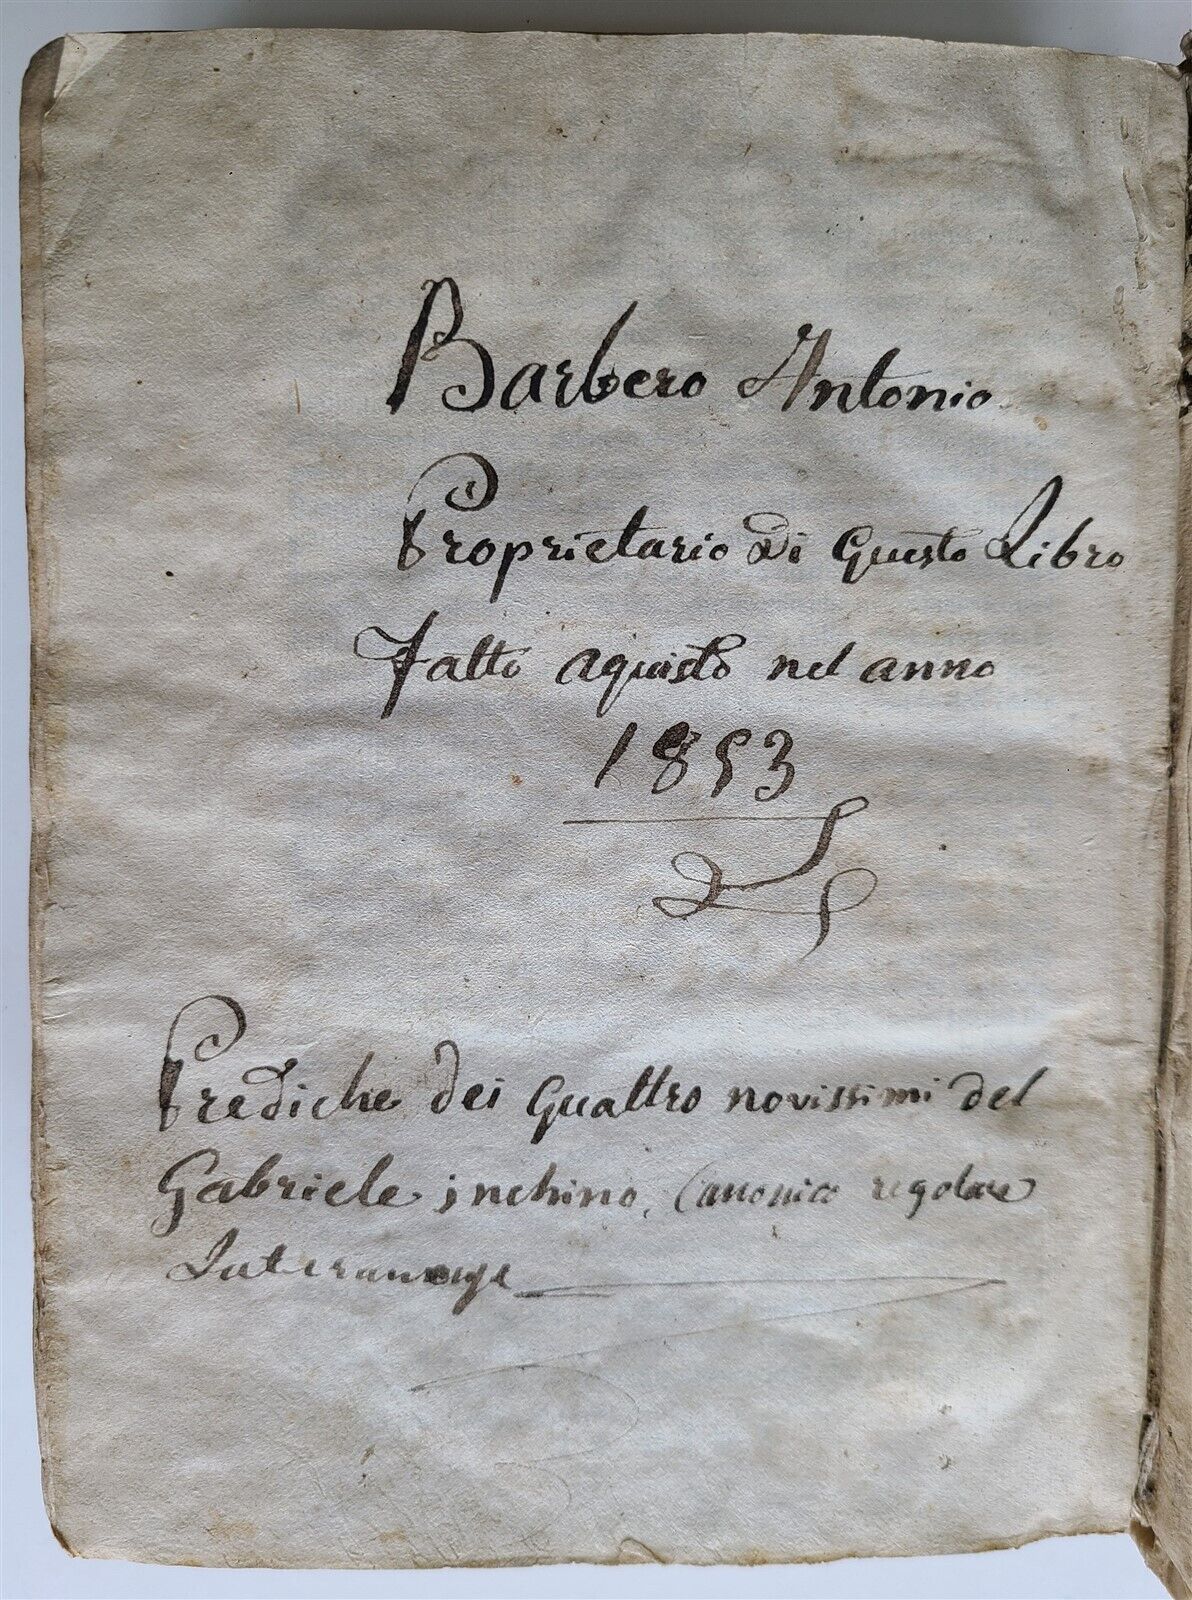 Barbero Antonio
Proprietario Di Questo Libro
Fatto aquisto nel anno
1853
Prediche dei Quattro novissimi del
Gabriele inchino, Canonico regolare